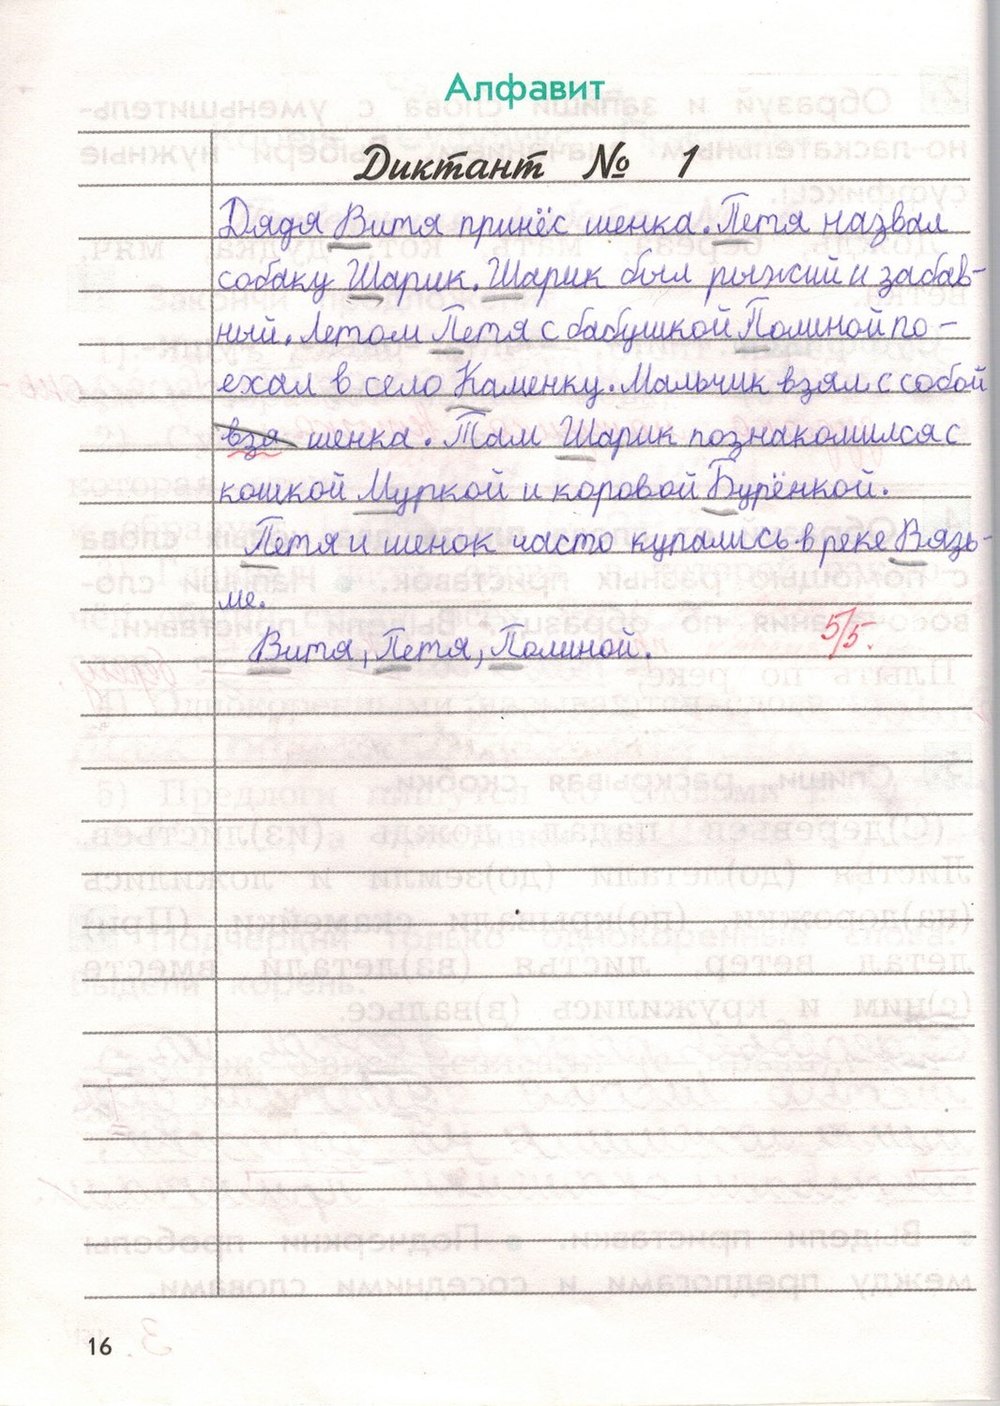 Алфавит
Диктант № 1
Дядя Витя принёс щенка. Петя назвал
собаку Шарик. Шарик был рыжий и забав-
ный. Летом Петя с бабушкой Полиной по-
ехал в село Каменку. Мальчик взял с собой
взя щенка. Там Шарик познакомился с
кошкой Муркой и коровой Бурёнкой.
Петя и щенок часто купались в реке Вязь-
ме.
5/5.
Витя, Петя, Полиной.
16